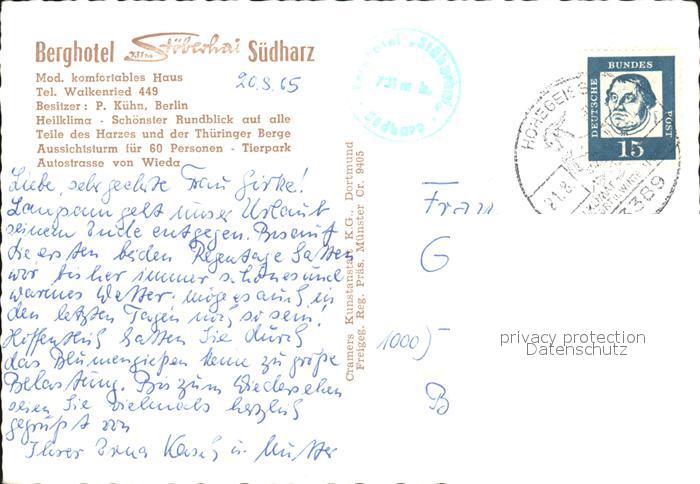 Berghotel Stöberhai Südharz
Mod. komfortables Haus
Tel. Walkenried 449
Besitzer: P. Kühn, Berlin
Heilklima - Schönster Rundblick auf alle
Teile des Harzes und der Thüringer Berge
Aussichtsturm für 60 Personen - Tierpark
Autostrasse von Wieda
20.8.65
Liebe, sehr geehrte Frau Girke!
Langsam geht unser Urlaub
seinem Ende entgegen. Bis auf
die ersten beiden Regentage hatten
wir bisher immer schönes und
warmes Wetter. möge es auch in
den letzten Tagen noch so sein!
Hoffentlich hatten Sie durch
das Blumengießen keine zu große
Belastung. Bis zum Wiedersehen
seien Sie vielmals herzlich
gegrüßt von
Ihrer Erna Kasch u. Mutter
Cramers Kunstanstalt K.G., Dortmund
Freigeg. Reg. Präs. Münster Cr. 9405
731 m
HOHEGEISS
21.8.
3389
DEUTSCHE
BUNDES
POST
15
Frau
G
1000)-
B
privacy protection
Datenschutz